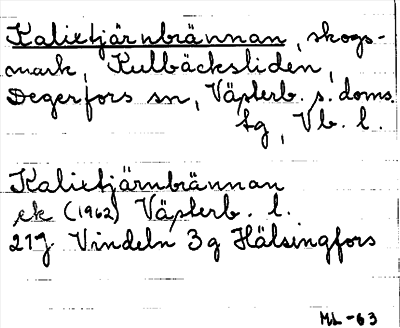 Kalixtjärnbrännan, skogs-
mark, Kulbäcksliden,
Degerfors sn, Västerb. s. doms.
tg, Vb. l.
Kalixtjärnbrännan
ek (1962) Västerb. l.
21J Vindeln 3g Hälsingfors
ML-63